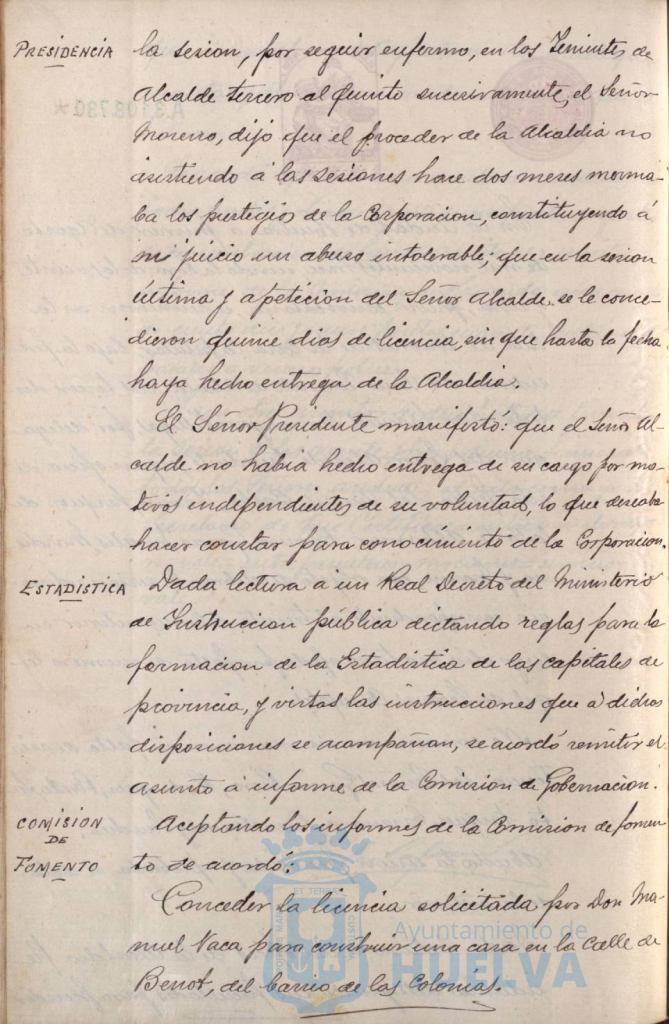 PRESIDENCIA
la sesion, por seguir enfermo, en los Tenientes de
Alcalde tercero al quinto sucesivamente, el Señor
Moreno, dijo que el proceder de la Alcaldia no
asistiendo á las sesiones hace dos meses merma-
ba los prestigios de la Corporacion, constituyendo á
su juicio un abuso intolerable; que en la sesion
última y a peticion del Señor Alcalde, se le conce-
dieron quince dias de licencia, sin que hasta la fecha
haya hecho entrega de la Alcaldia.
El Señor Presidente manifestó: que el Señor Al-
calde no habia hecho entrega de su cargo por mo-
tivos independientes de su voluntad, lo que deseaba
hacer constar para conocimiento de la Corporacion.
ESTADISTICA
Dada lectura á un Real Decreto del Ministerio
de Instruccion pública dictando reglas para la
formacion de la Estadistica de las capitales de
provincia, y vistas las instrucciones que á dichas
disposiciones se acompañan, se acordó remitir el
asunto á informe de la Comision de Gobernacion.
COMISION
DE
FOMENTO
Aceptando los informes de la Comision de fomen-
to se acordó:
Conceder la licencia solicitada por Don Ma-
nuel Vaca para construir una casa en la calle de
Benot, del barrio de las Colonias.
Ayuntamiento de
HUELVA